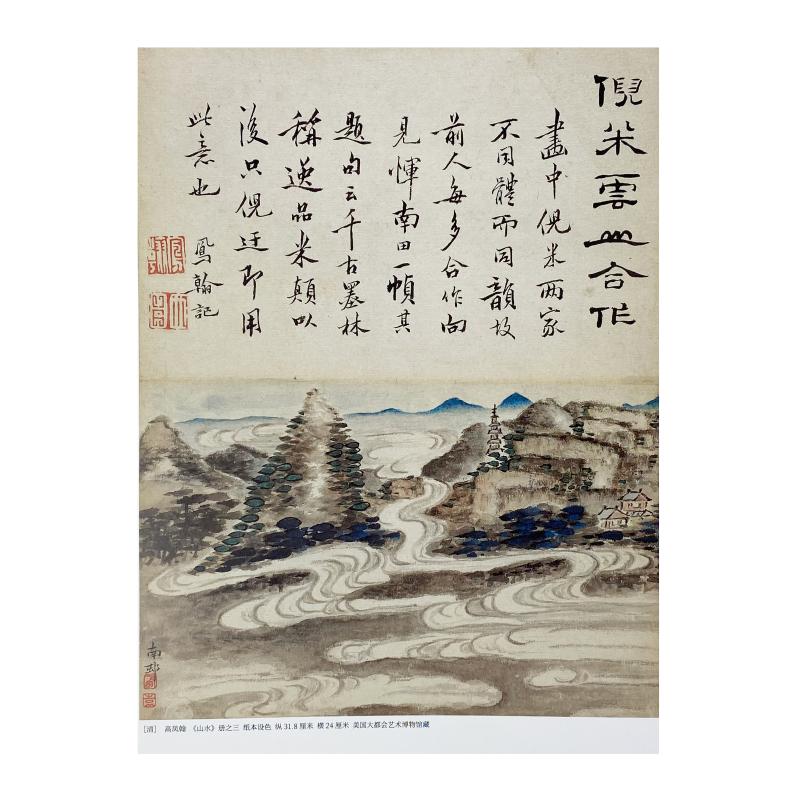 倪米雲山合作
畫中倪米两家
不同體而同韻故
前人每多合作向
見惲南田一幀其
題句云千古墨林
稱逸品米顛以
後只倪迂即用
此意也
鳳翰記
南邨
[清] 高凤翰 《山水》册之三 纸本设色 纵 31.8 厘米 横 24 厘米 美国大都会艺术博物馆藏